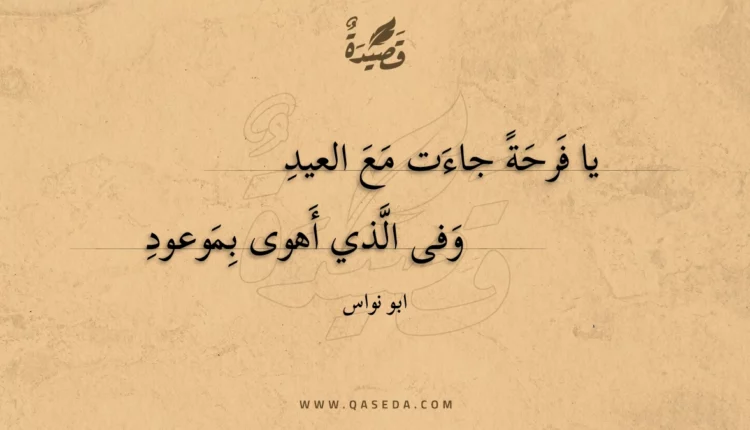 قَصِيْدَةٌ
يا فَرحَةً جاءَت مَعَ العيدِ
وَفى الَّذي أَهوى بِمَوعودِ
ابو نواس
WWW.QASEDA.COM